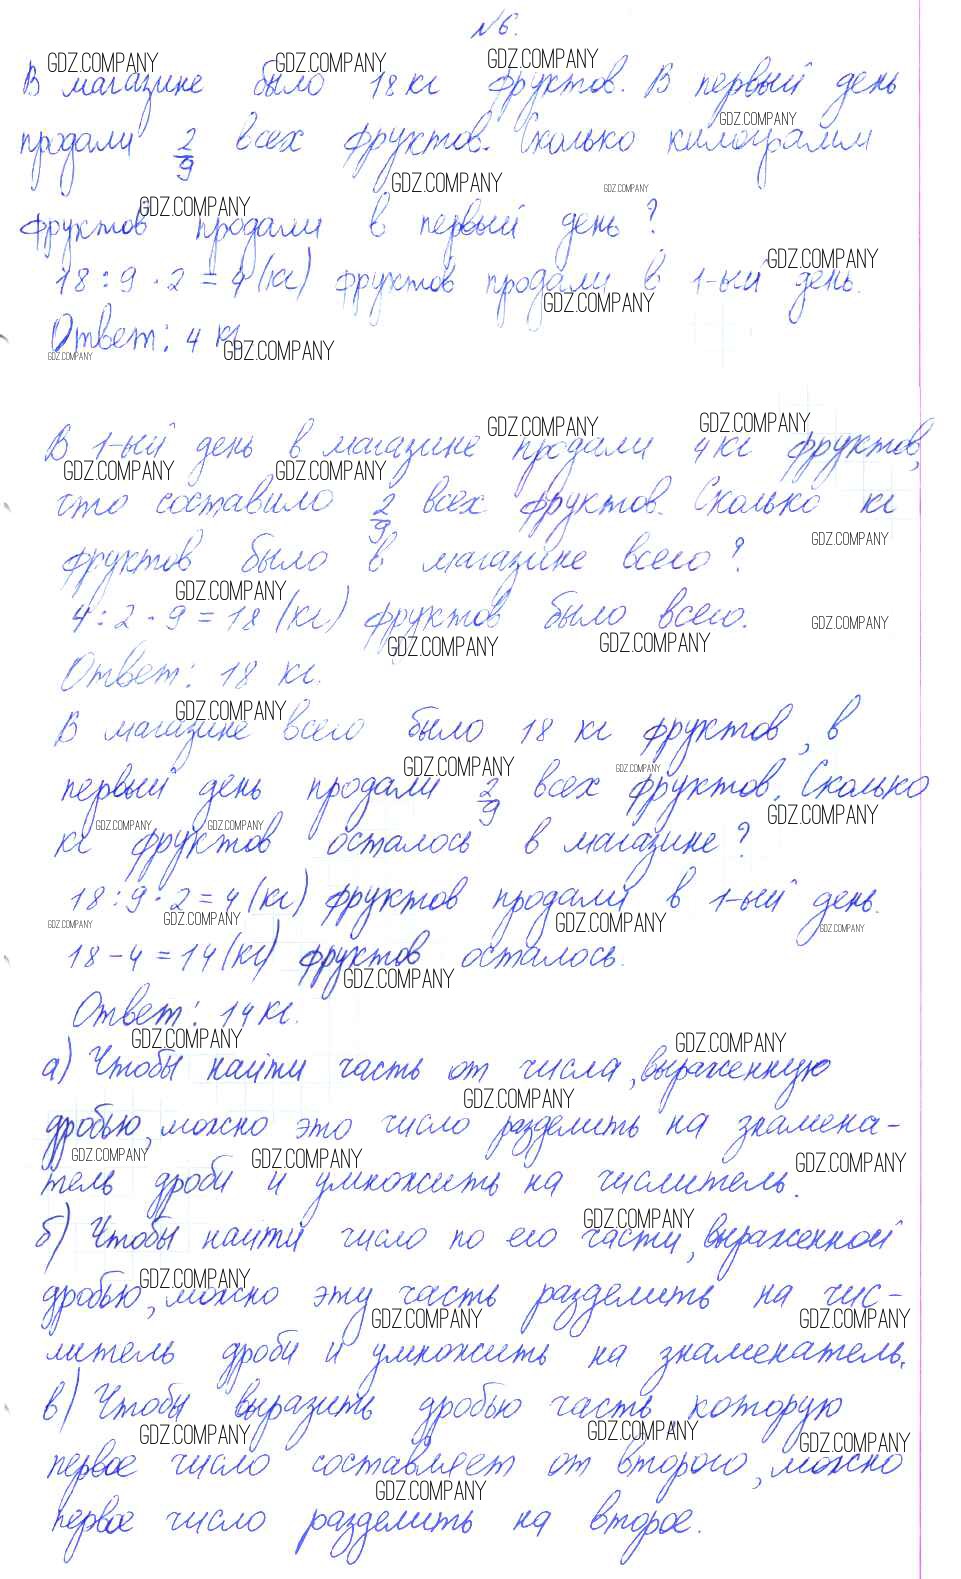 №6.
В магазине было 18 кг фруктов. В первый день
продали 2/9 всех фруктов. Сколько килограмм
фруктов продали в первый день?
18 : 9 · 2 = 4 (кг) фруктов продали в 1-ый день.
Ответ: 4 кг.
В 1-ый день в магазине продали 4 кг фруктов,
что составило 2/9 всех фруктов. Сколько кг
фруктов было в магазине всего?
4 : 2 · 9 = 18 (кг) фруктов было всего.
Ответ: 18 кг.
В магазине всего было 18 кг фруктов, в
первый день продали 2/9 всех фруктов. Сколько
кг фруктов осталось в магазине?
18 : 9 · 2 = 4 (кг) фруктов продали в 1-ый день.
18 - 4 = 14 (кг) фруктов осталось.
Ответ: 14 кг.
а) Чтобы найти часть от числа, выраженную
дробью, можно это число разделить на знамена-
тель дроби и умножить на числитель.
б) Чтобы найти число по его части, выраженной
дробью, можно эту часть разделить на чис-
литель дроби и умножить на знаменатель.
в) Чтобы выразить дробью часть, которую
первое число составляет от второго, можно
первое число разделить на второе.
GDZ.COMPANY